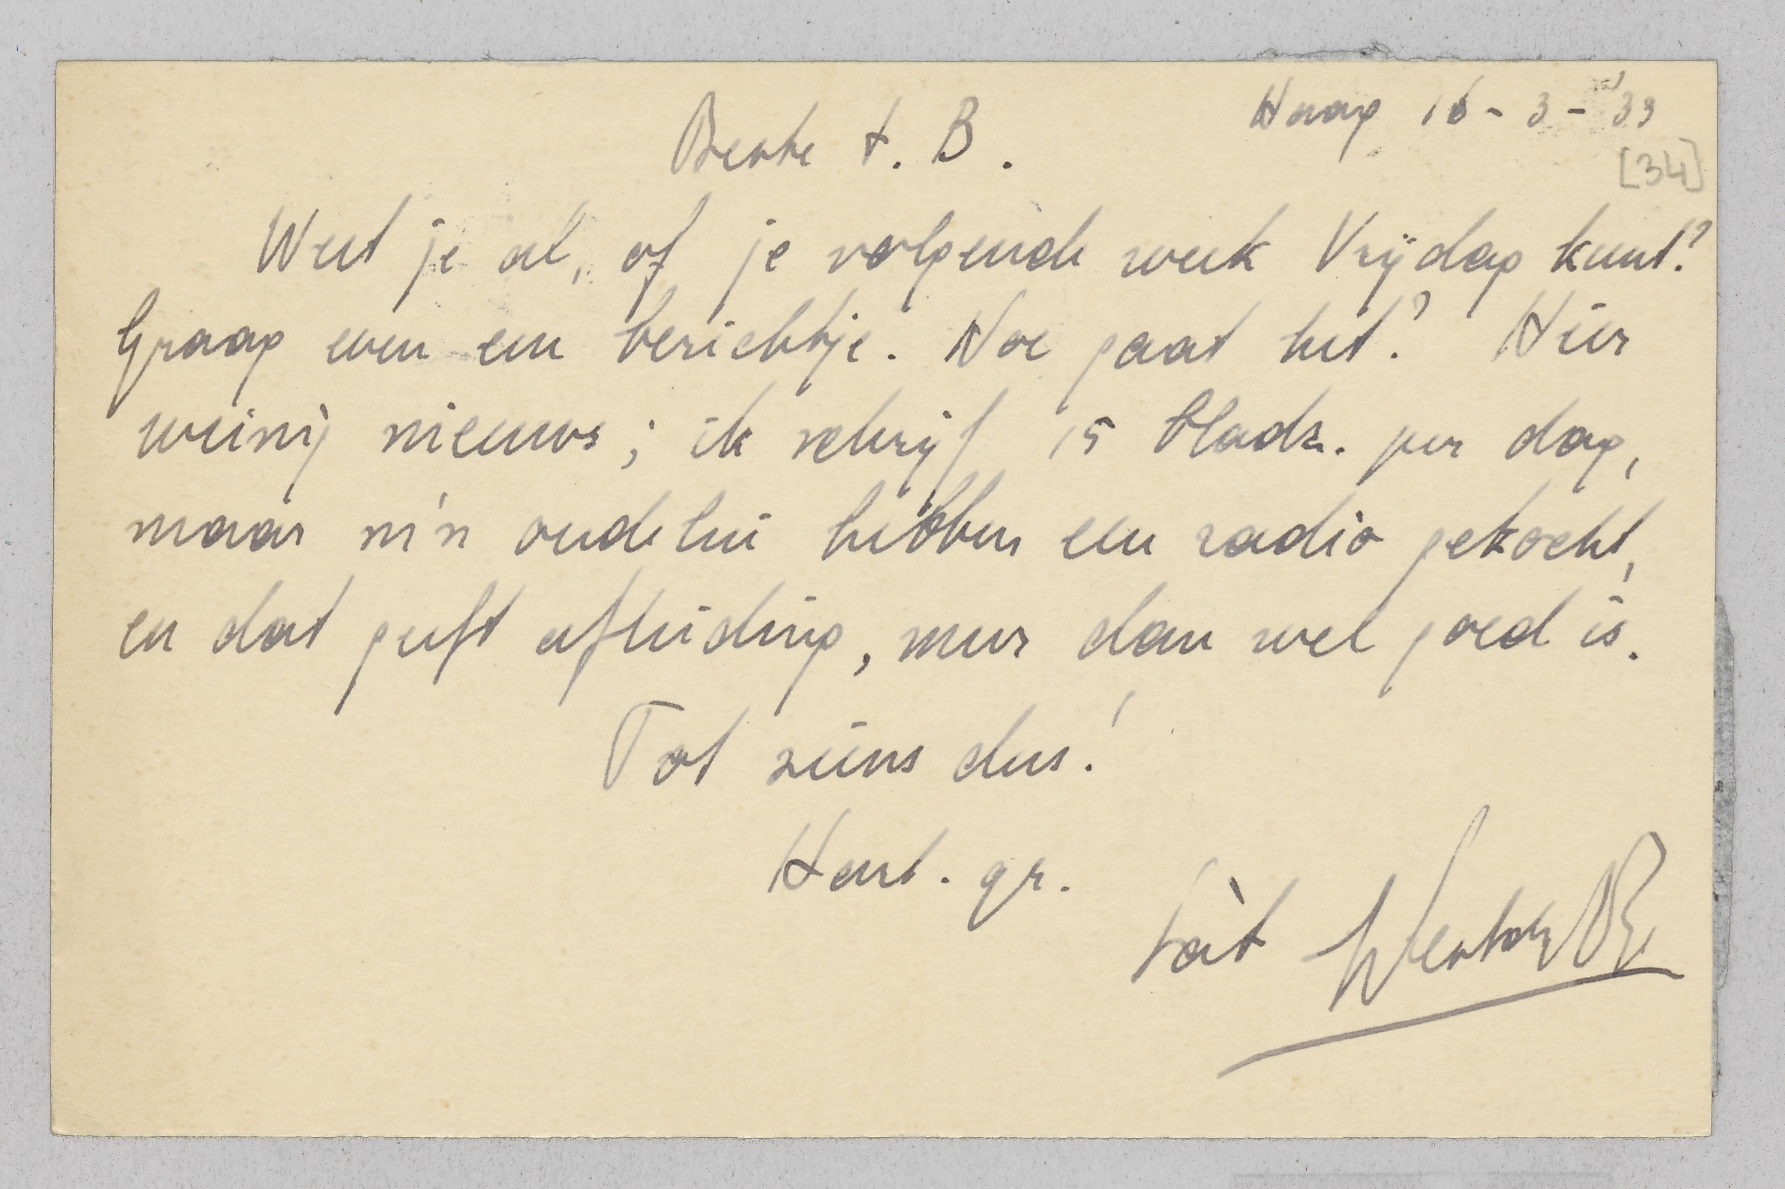 Haag 16-3-'33
[34]
Beste t. B.
Weet je al, of je volgende week Vrijdag kunt?
Graag even een berichtje. Hoe gaat het? Hier
weinig nieuws; ik schrijf 15 bladz. per dag,
maar m'n oudelui hebben een radio gekocht,
en dat geeft afleiding, meer dan wel goed is.
Tot ziens dus!
Hart. gr.
tàt